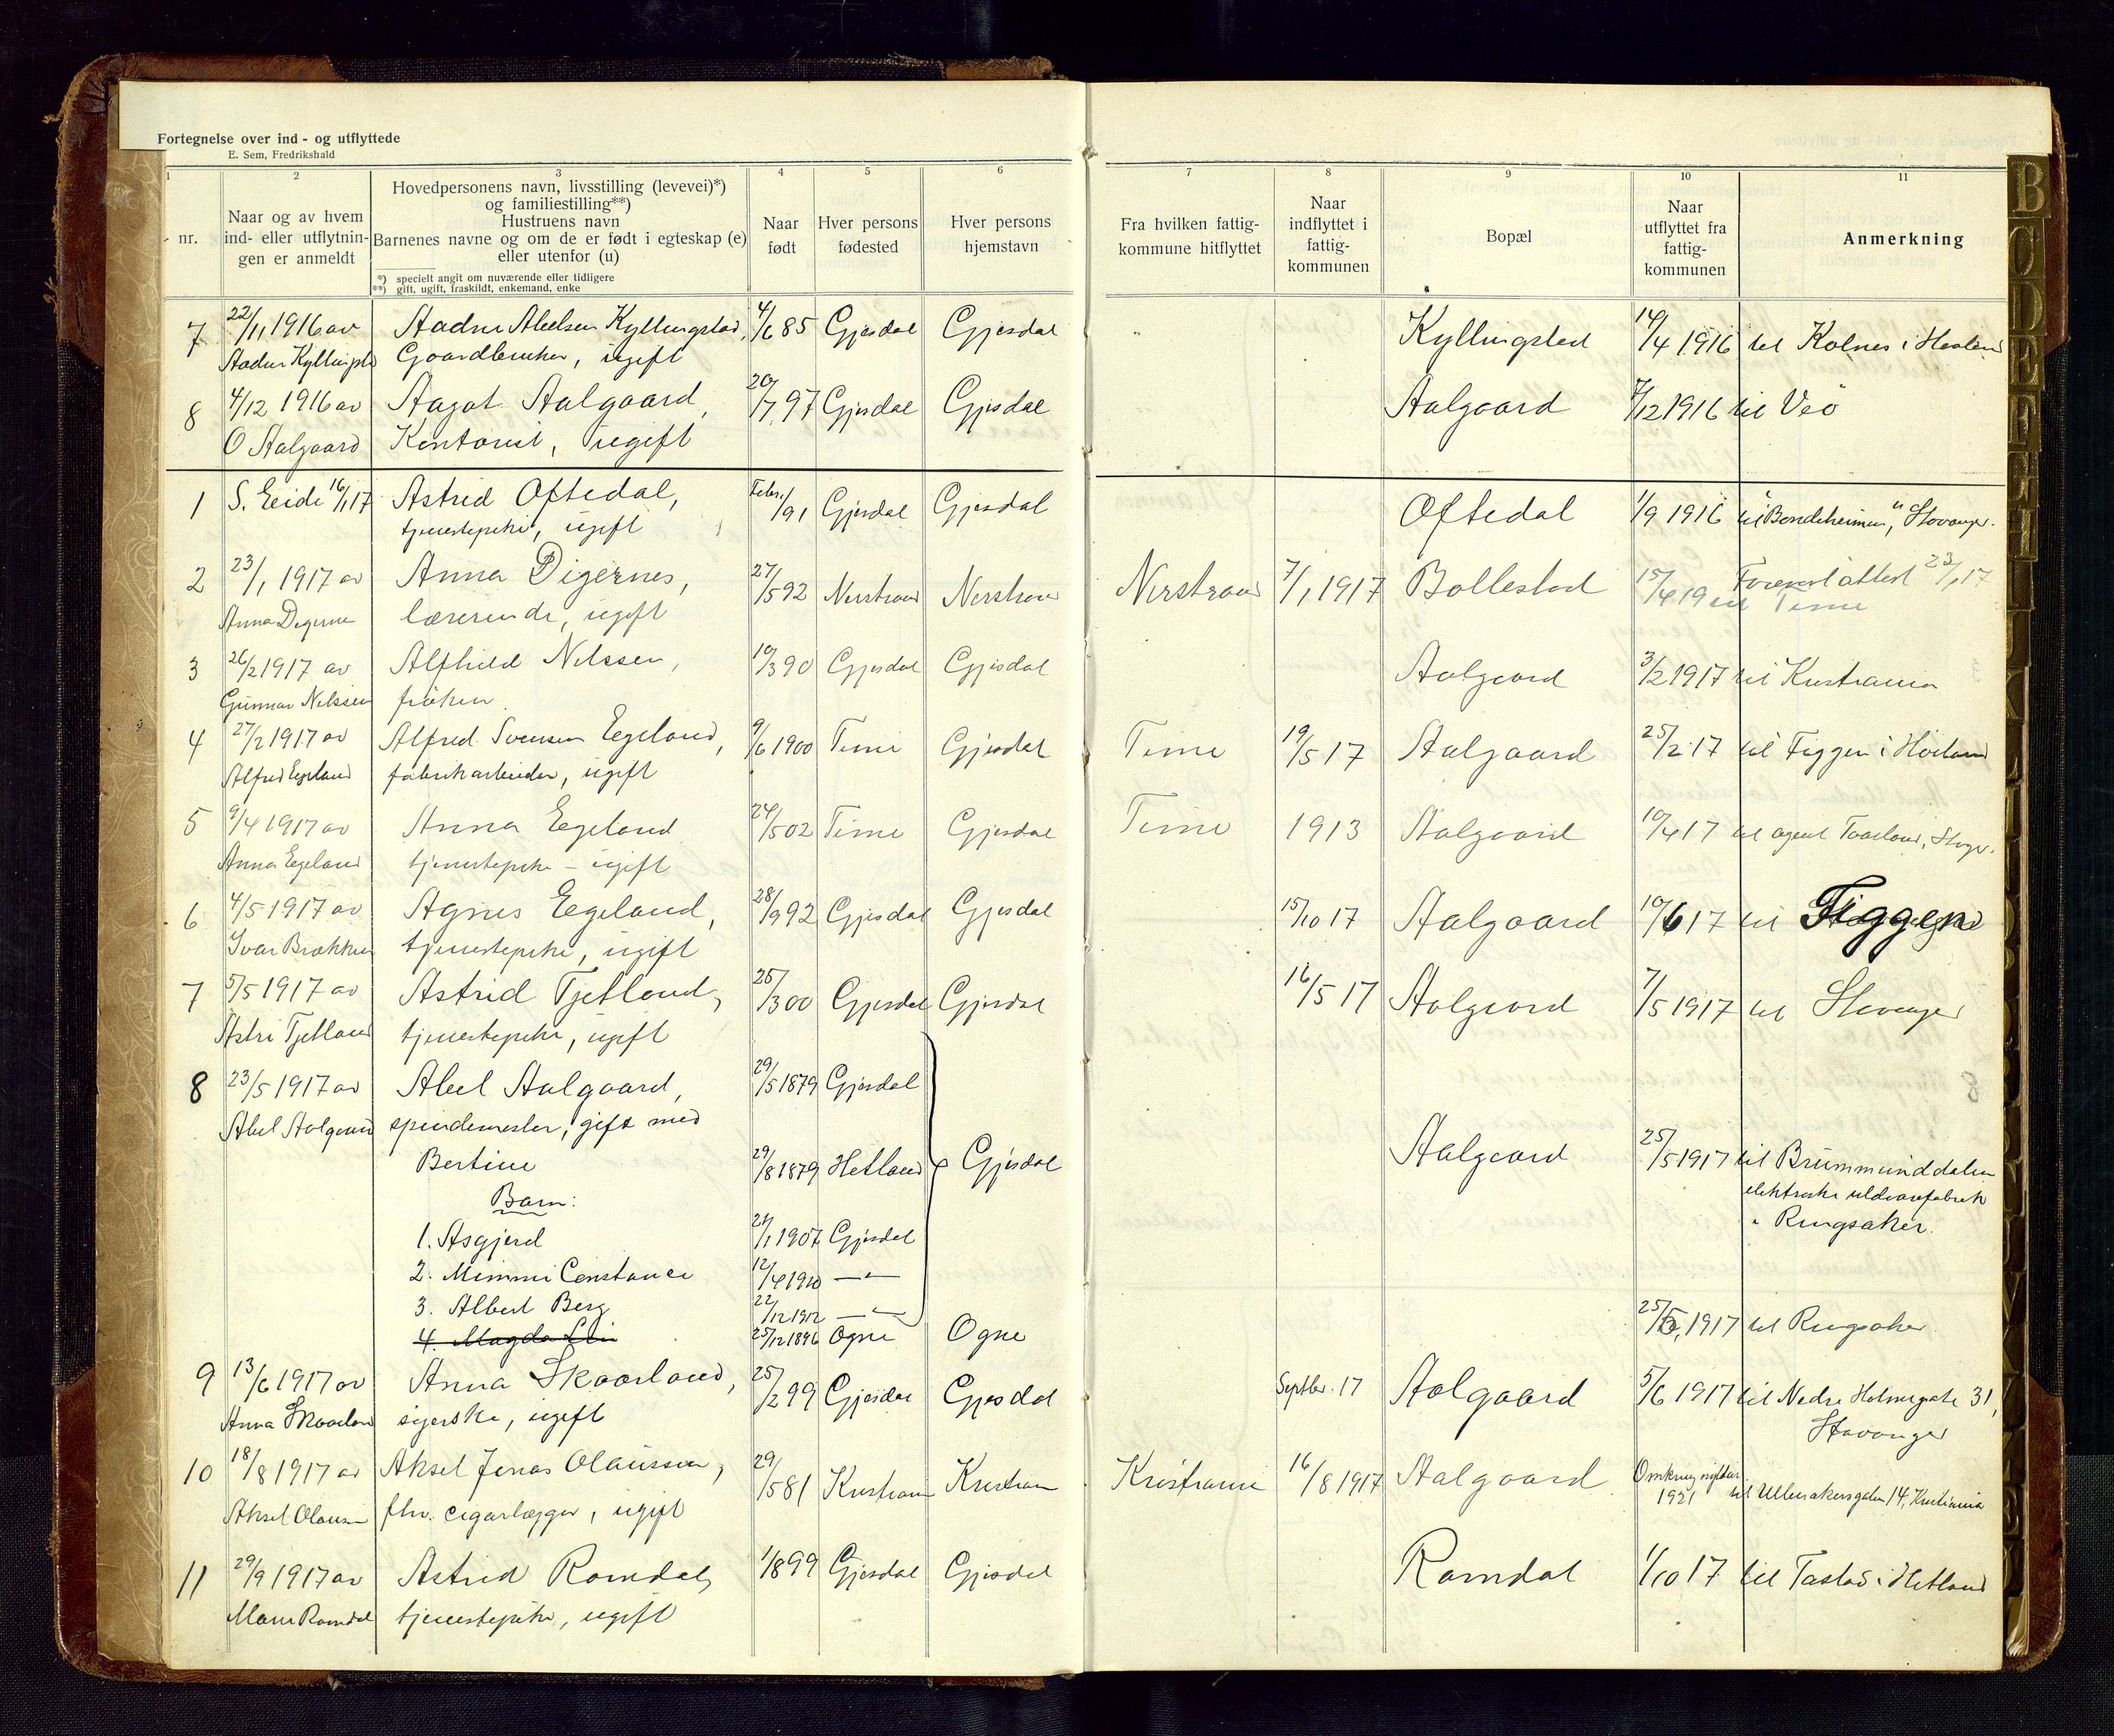 Fortegnelse over ind- og utflyttede
E. Sem, Fredrikshald
1 2 3 4 5 6 7 8 9 10 11
nr.
Naar og av hvem
ind- eller utflytnin-
gen er anmeldt
Hovedpersonens navn, livsstilling (levevei)*)
og familiestilling**)
Hustruens navn
Barnenes navne og om de er født i egteskap (e)
eller utenfor (u)
*) specielt angit om nuværende eller tidligere
**) gift, ugift, fraskildt, enkemand, enke
Naar
født
Hver persons
fødested
Hver persons
hjemstavn
Fra hvilken fattig-
kommune hitflyttet
Naar
indflyttet i
fattig-
kommunen
Bopæl
Naar
utflyttet fra
fattig-
kommunen
Anmerkning
7 22/11 1916 av Aadne Abelsen Kyllingstad, 4/6 85 Gjesdal Gjesdal Kyllingstad 14/4 1916 til Kolnes i Haaland
Aadne Kyllingsta Gaardbruker, ugift
8 4/12 1916 av Aagot Aalgaard, 20/7 97 Gjesdal Gjesdal Aalgaard 7/12 1916 til Veø
O Aalgaard Kontorist, ugift
1 S. Eeide 16/1 17 Astrid Oftedal, Febr./91 Gjesdal Gjesdal Oftedal 1/9 1916 til "Bondeheimen", Stavanger.
tjenestepike, ugift
2 23/1 1917 av Anna Digernes, 27/5 92 Nerstrand Nerstrand Nerstrand 7/1 1917 Bollestad 15/4 19 til Time 23/1 17
Anna Digerne lærerinde, ugift
3 26/2 1917 av Alfhild Nilssen, 10/3 90 Gjesdal Gjesdal Aalgaard 3/2 1917 til Kristiania
Gunnar Nilssen frøken
4 27/2 1917 av Alfred Svensen Egeland, 9/6 1900 Time Gjesdal Time 19/5 17 Aalgaard 25/2 17 til Figgen i Høiland
Alfred Egeland fabrikarbeider, ugift
5 9/4 1917 av Anna Egeland 24/5 02 Time Gjesdal Time 1913 Aalgaard 10/4 17 til agent Taarland, Stvgr.
Anna Egeland tjenestepike - ugift
6 4/5 1917 av Agnes Egeland, 28/9 92 Gjesdal Gjesdal 15/10 17 Aalgaard 10/6 17 til Figgen
Ivar Brækken tjenestepike, ugift
7 5/5 1917 av Astrid Tjetland, 25/3 00 Gjesdal Gjesdal 16/5 17 Aalgaard 7/5 1917 til Stavanger
Astri Tjetland tjenestepike, ugift
8 23/5 1917 av Abel Aalgaard, 29/5 1879 Gjesdal
Abel Aalgaard spindemester, gift med
Bertine 29/8 1879 Hetland Gjesdal Aalgaard 25/5 1917 til Brummunddalen
elektriske uldvarefabrik
Barn:
i Ringsaker.
1. Asgjerd 24/1 1907 Gjesdal
2. Mimmi Constance 12/4 1910 —"—
3. Albert Berg 22/12 1912 —"—
4. Magda Lui 25/12 1896 Ogne Ogne 25/5 1917 til Ringsaker
9 13/6 1917 av Anna Skaarland, 25/2 99 Gjesdal Gjesdal Septbr. 17 Aalgaard 5/6 1917 til Nedre Holmegate 31,
Anna Skaarlan syerske, ugift Stavanger
10 18/8 1917 av Aksel Jonas Olaussen, 29/5 81 Kristiania Kristiania Kristiania 16/8 1917 Aalgaard Omkring nyttaar
1921 til Ullevaalsgaten 14, Kristiania
Aksel Olausen fhv. cigarlægger, ugift
11 29/9 1917 av Astrid Romdal, 1/8 99 Gjesdal Gjesdal Ramdal 1/10 17 til Tastad i Hetland
Marie Ramdal tjenestepike, ugift
B
C
D
E
F
G
I
J
K
L